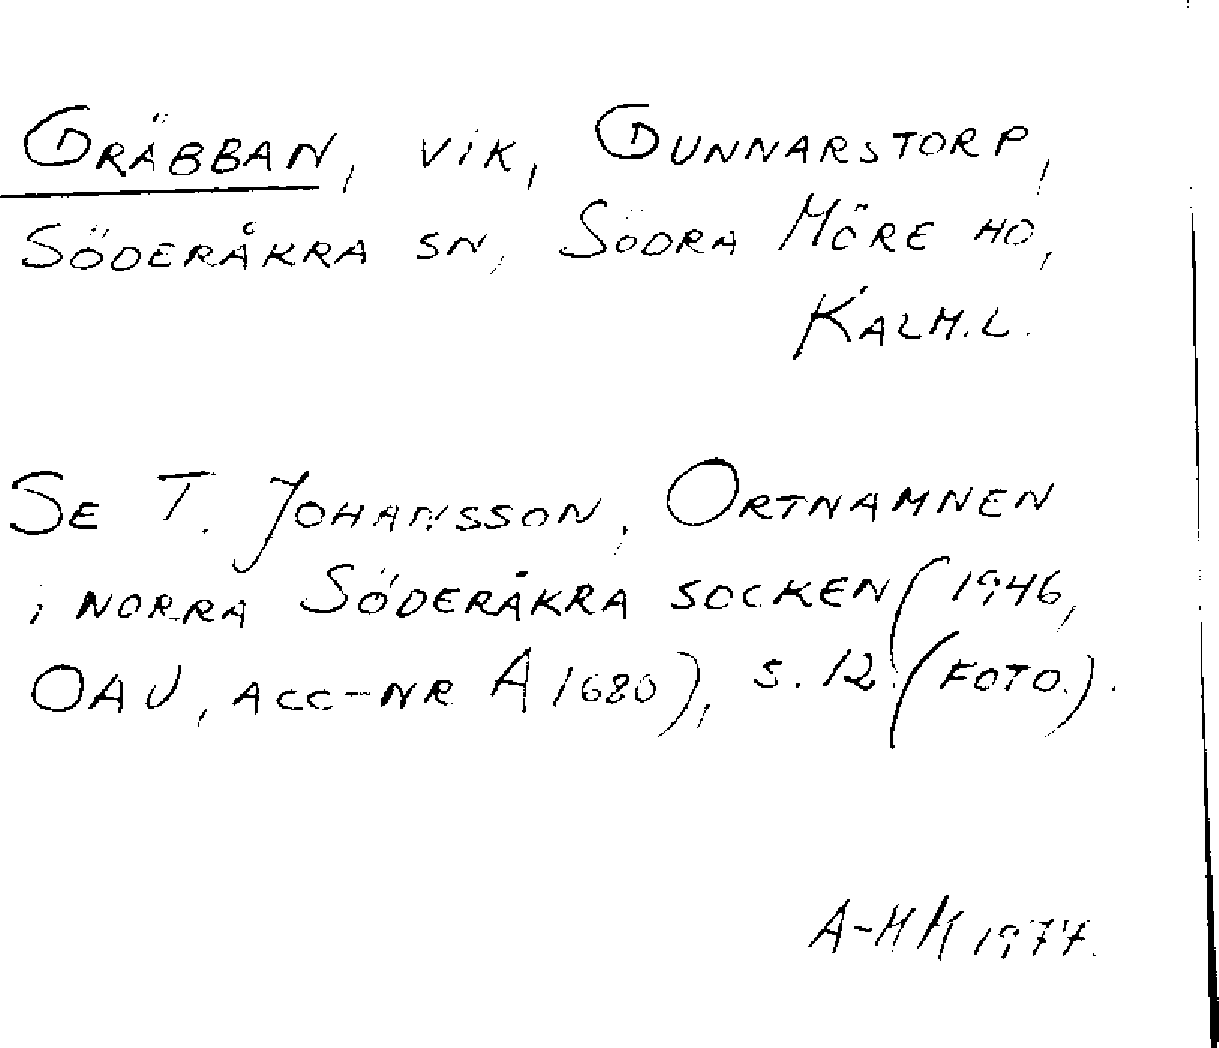 GRÄBBAN, VIK, GUNNARSTORP,
SÖDERÅKRA SN, SÖDRA MÖRE HD,
KALM.L.
SE T. JOHANSSON, ORTNAMNEN
i NORRA SÖDERÅKRA SOCKEN (1946,
OAU, ACC-NR A 1680), S. 12 (FOTO.).
A-HH 1977.